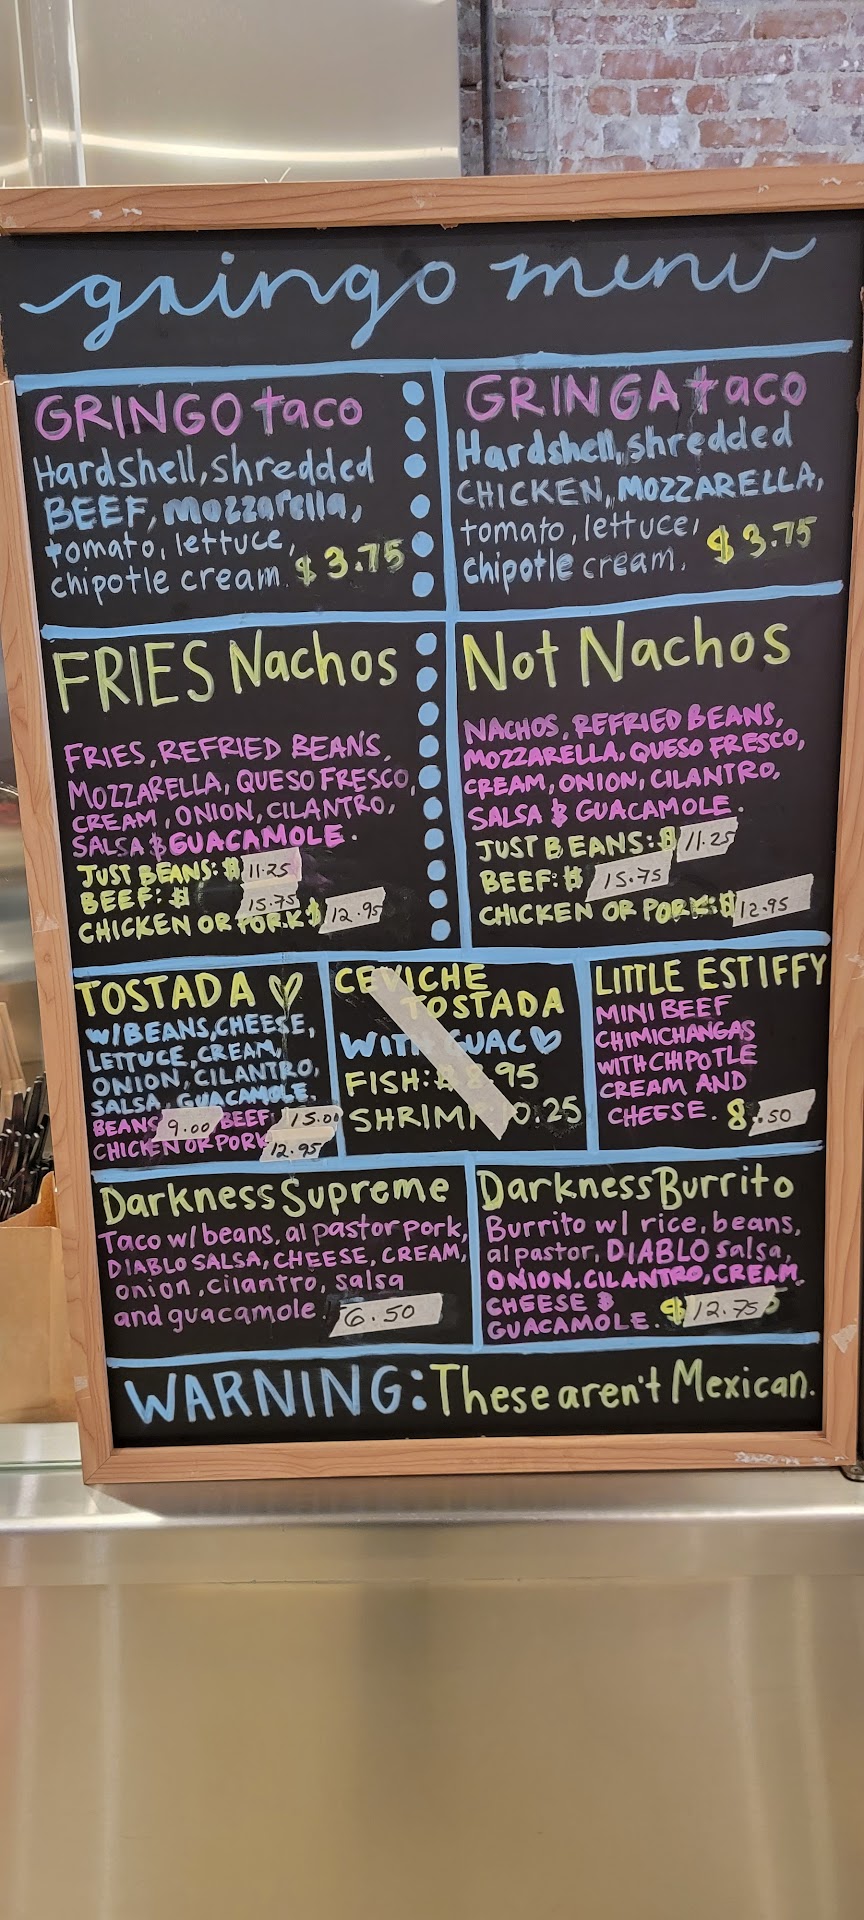 gringo menu
GRINGO taco
Hardshell, shredded
BEEF, mozzarella,
tomato, lettuce,
chipotle cream. $3.75
GRINGA taco
Hardshell, shredded
CHICKEN, MOZZARELLA,
tomato, lettuce,
chipotle cream. $3.75
FRIES Nachos
FRIES, REFRIED BEANS,
MOZZARELLA, QUESO FRESCO,
CREAM, ONION, CILANTRO,
SALSA & GUACAMOLE.
JUST BEANS: $ 11.25
BEEF: $ 15.75
CHICKEN OR PORK $ 12.95
Not Nachos
NACHOS, REFRIED BEANS,
MOZZARELLA, QUESO FRESCO,
CREAM, ONION, CILANTRO,
SALSA & GUACAMOLE.
JUST BEANS: $ 11.25
BEEF: $ 15.75
CHICKEN OR PORK: $ 12.95
TOSTADA
W/BEANS, CHEESE,
LETTUCE, CREAM,
ONION, CILANTRO,
SALSA, GUACAMOLE.
BEANS 9.00 BEEF 15.00
CHICKEN OR PORK 12.95
CEVICHE
TOSTADA
WITH GUAC
FISH: $ 8.95
SHRIMP 0.25
LITTLE ESTIFFY
MINI BEEF
CHIMICHANGAS
WITH CHIPOTLE
CREAM AND
CHEESE. 8.50
Darkness Supreme
Taco w/beans, al pastor pork,
DIABLO SALSA, CHEESE, CREAM,
onion, cilantro, salsa
and guacamole. 6.50
Darkness Burrito
Burrito w/ rice, beans,
al pastor, DIABLO salsa,
ONION, CILANTRO, CREAM,
CHEESE &
GUACAMOLE. $ 12.75
WARNING: These aren't Mexican.